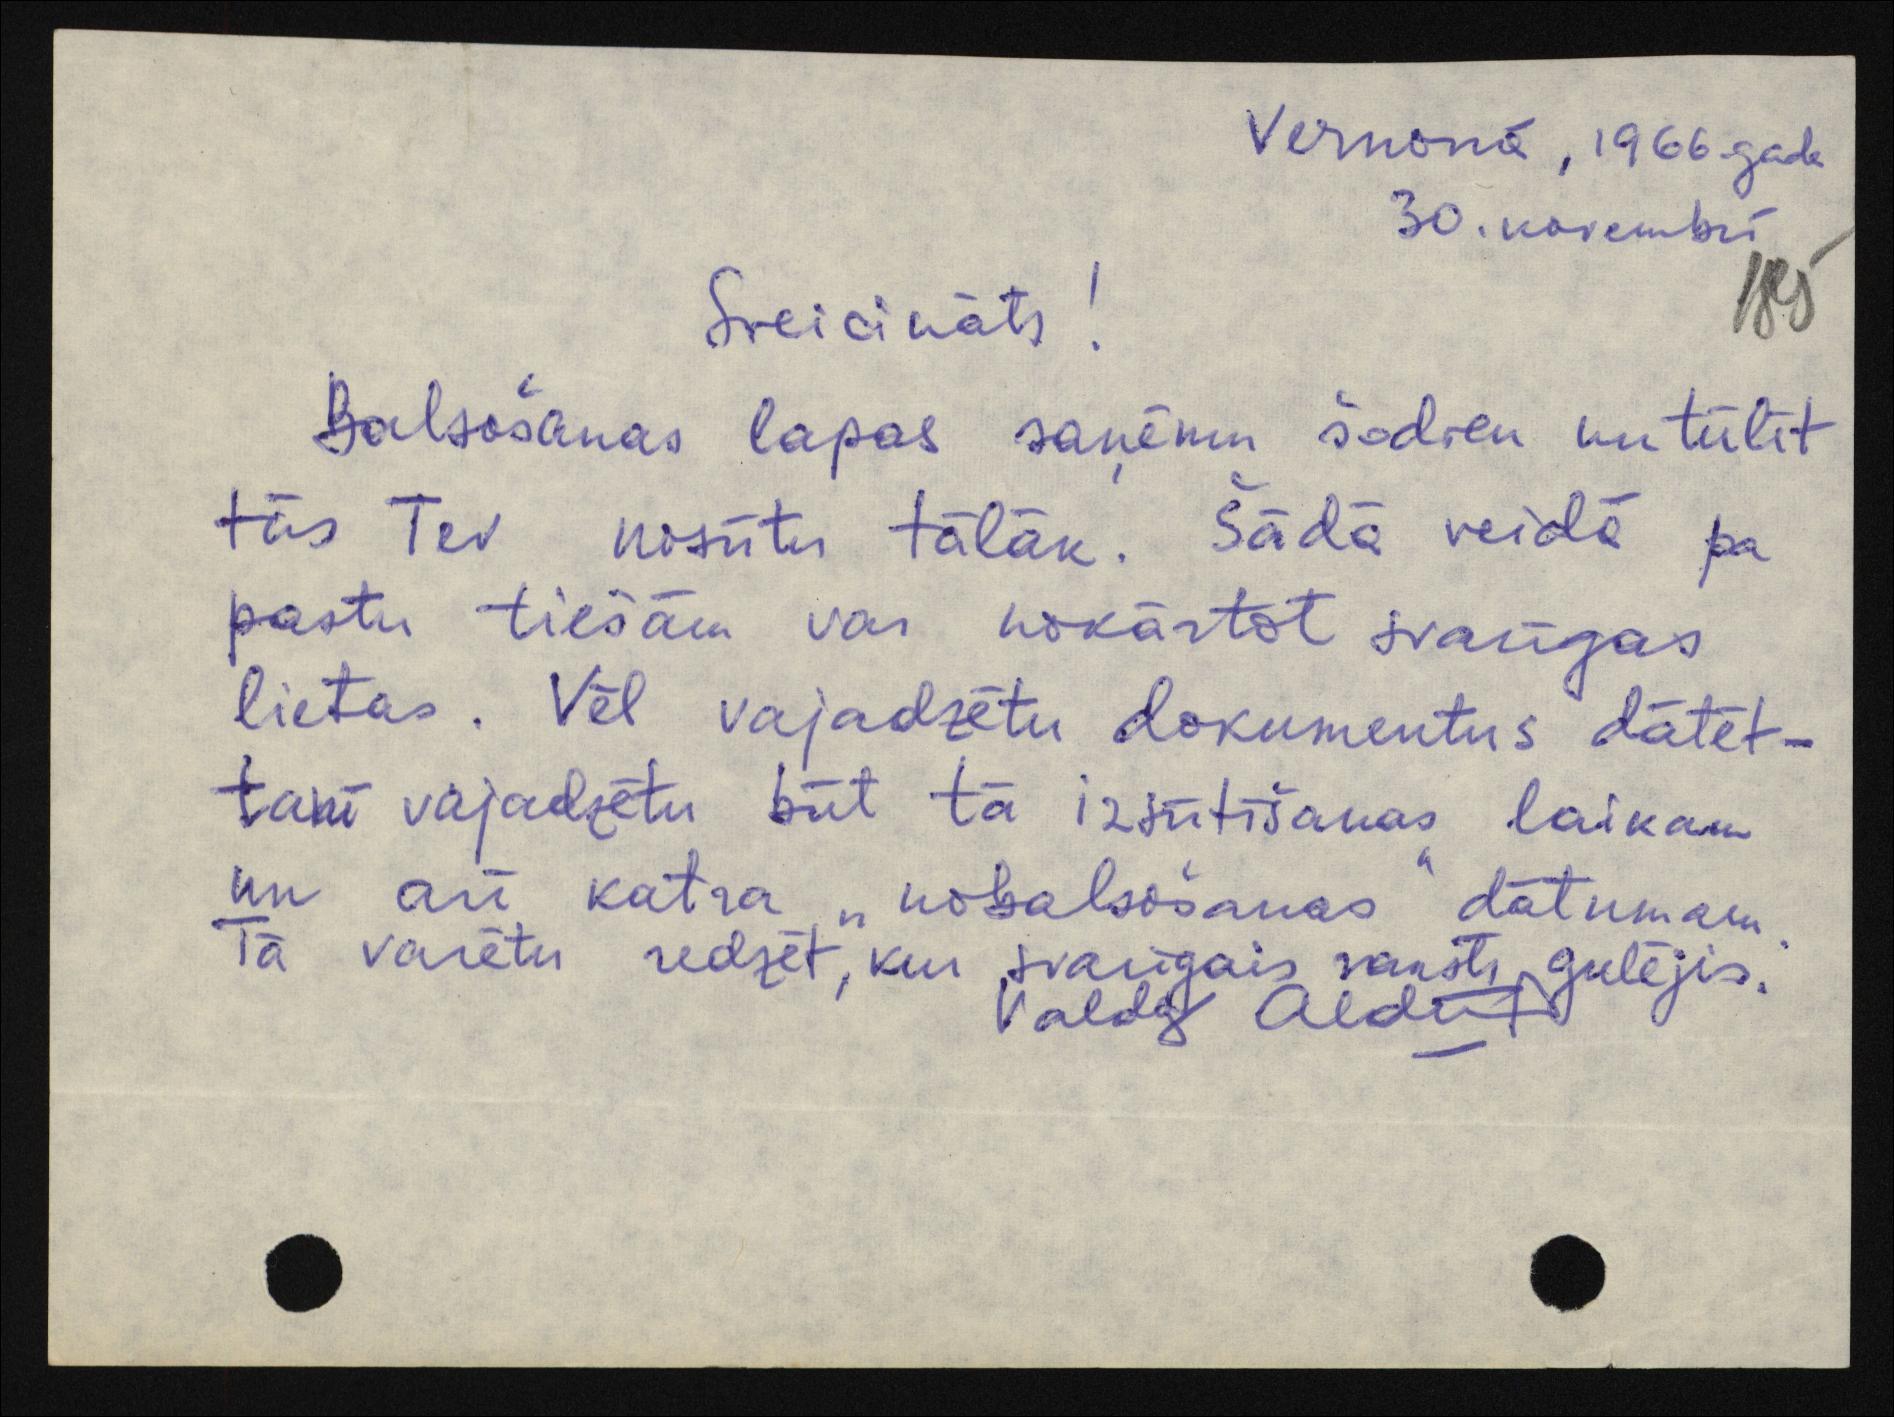 Vernonā, 1966. gada
30. novembrī
185
Sveicināts!
Balsošanas lapas saņēmu šodien un tūlīt
tās Tev nosūtu tālāk. Šādā veidā pa
pastu tiešām var nokārtot svarīgas
lietas. Vēl vajadzētu dokumentus dātēt-
tam vajadzētu būt tā izsūtīšanas laikam
un arī katra „nobalsošanas" dātumam.
Tā varētu redzēt, kur svarīgais raksts gulējis.
Valdis